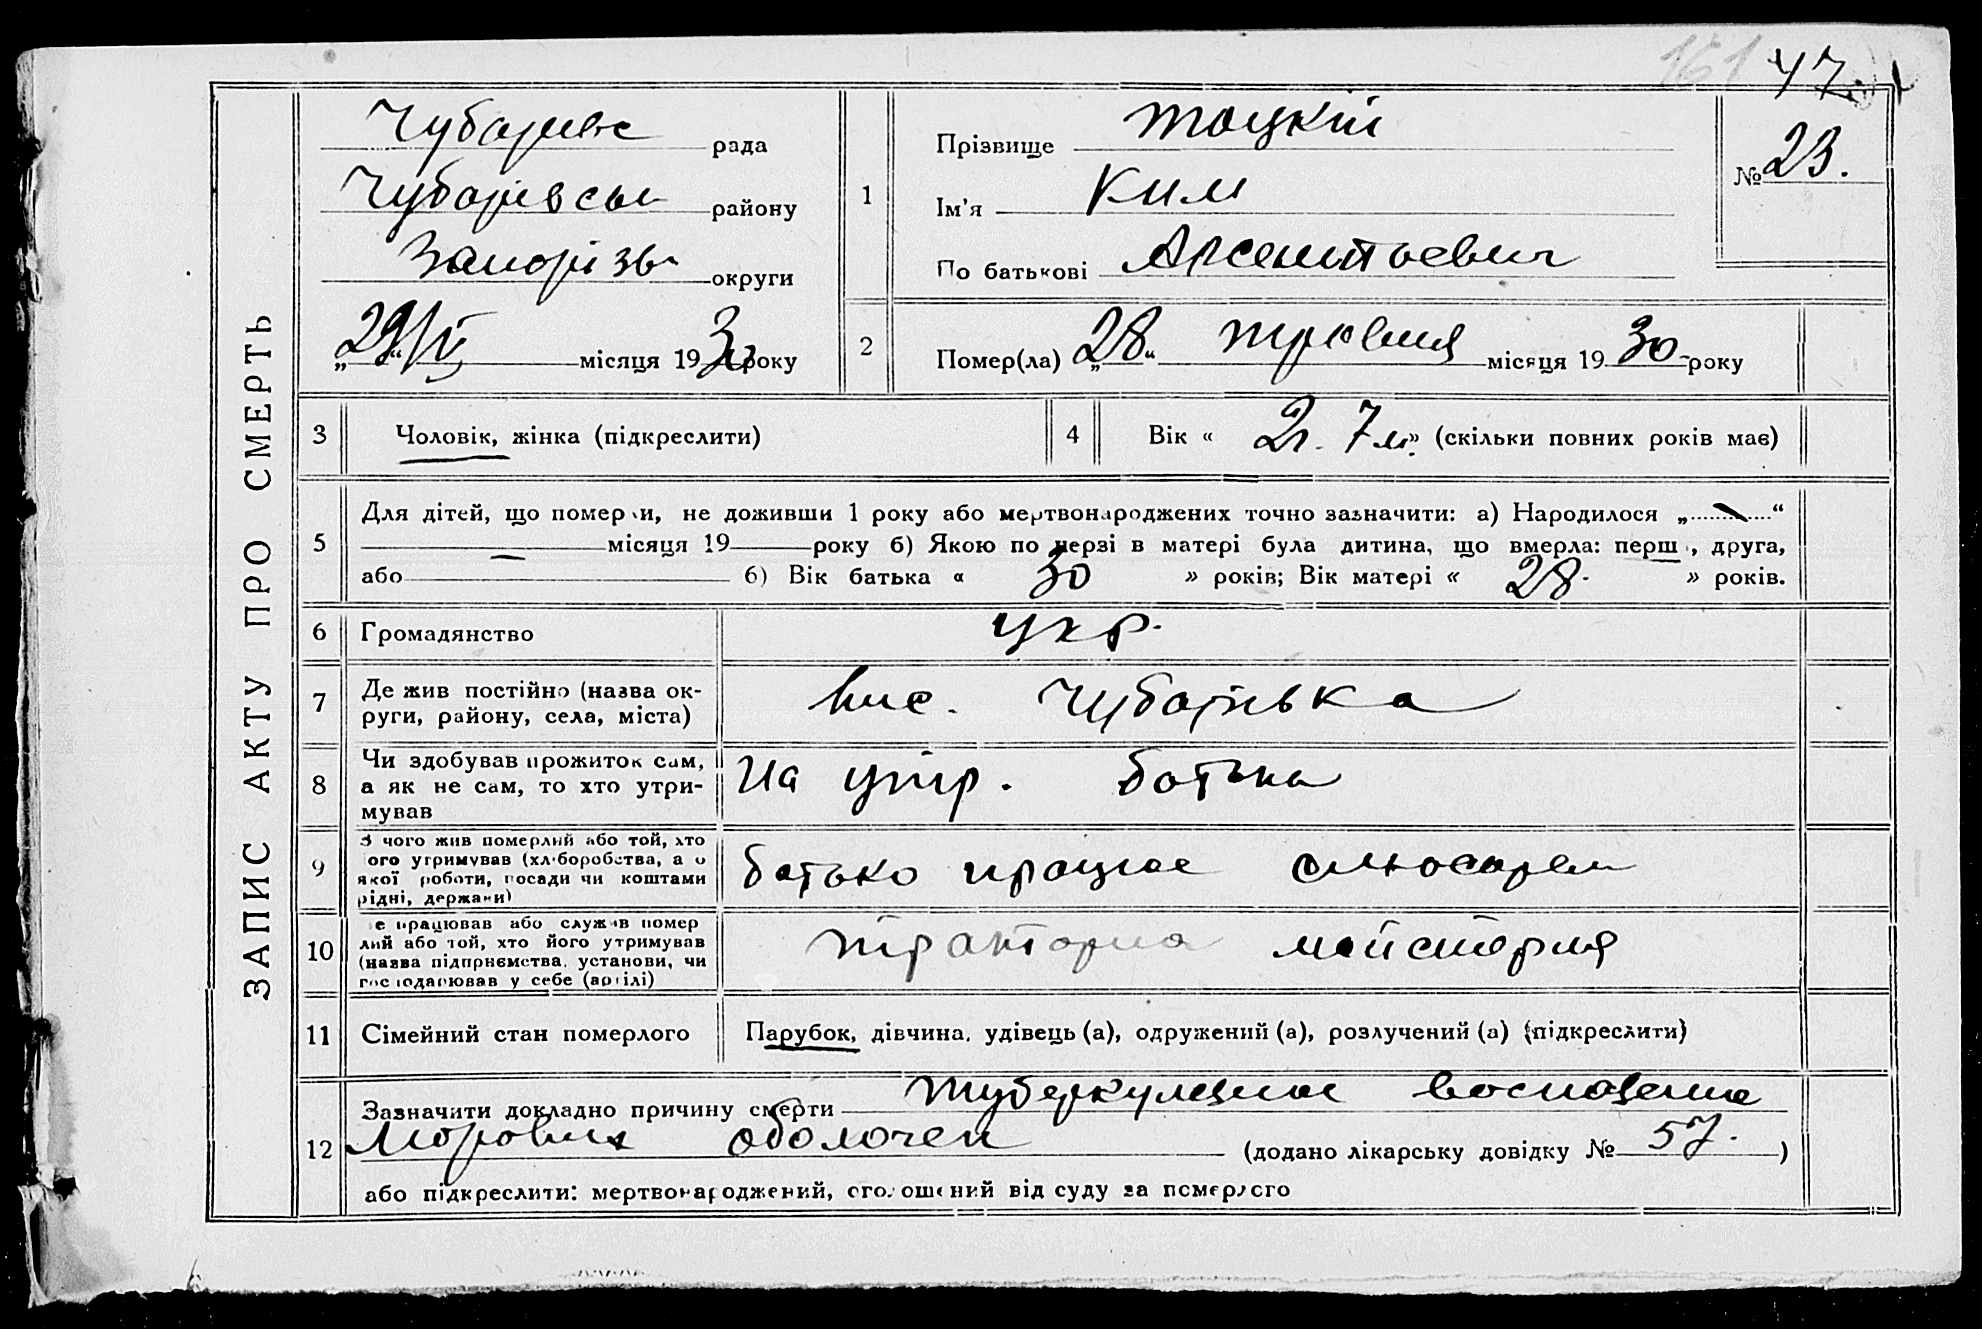 161 47
ЗАПИС АКТУ ПРО СМЕРТЬ
Чубарівс рада
Чубарівськ району
Запорізьк округи
„29/V“ місяця 1930 року
1 Прізвище Тоцкій
Ім'я Ким
По батькові Арсентьевич
№ 23.
2 Помер(ла) „28“ травня місяця 1930 року
3 Чоловік, жінка (підкреслити)
4 Вік « 2 г. 7 м. » (скільки повних років має)
5 Для дітей, що померли, не доживши 1 року або мертвонароджених точно зазначити: а) Народилося „ “
— місяця 19 року б) Якою по черзі в матері була дитина, що вмерла: перша, друга,
або б) Вік батька « 30 » років; Вік матері « 28 » років.
6 Громадянство укр.
7 Де жив постійно (назва ок-
руги, району, села, міста) Чубарівка
8 Чи здобував прожиток сам,
а як не сам, то хто утри-
мував На утр. батька
9 З чого жив померлий або той, хто
його утримував (хліборобства, а о
якої роботи, посади чи коштами
рідні, держави) батько працює слюсарем
10 Де працював або служив помер
лий або той, хто його утримував
(назва підприємства, установи, чи
господарював у себе (артілі) тракторна майстерня
11 Сімейний стан померлого Парубок, дівчина, удівець (а), одружений (а), розлучений (а) (підкреслити)
12 Зазначити докладно причину смерти туберкулезное воспаление
мозговых оболочек (додано лікарську довідку № 57. )
або підкреслити: мертвонароджений, оголошений від суду за померлого